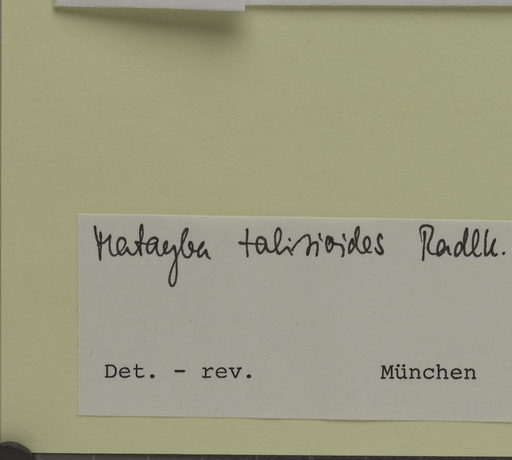 Matayba talisioides Radlk.
Det. - rev. München